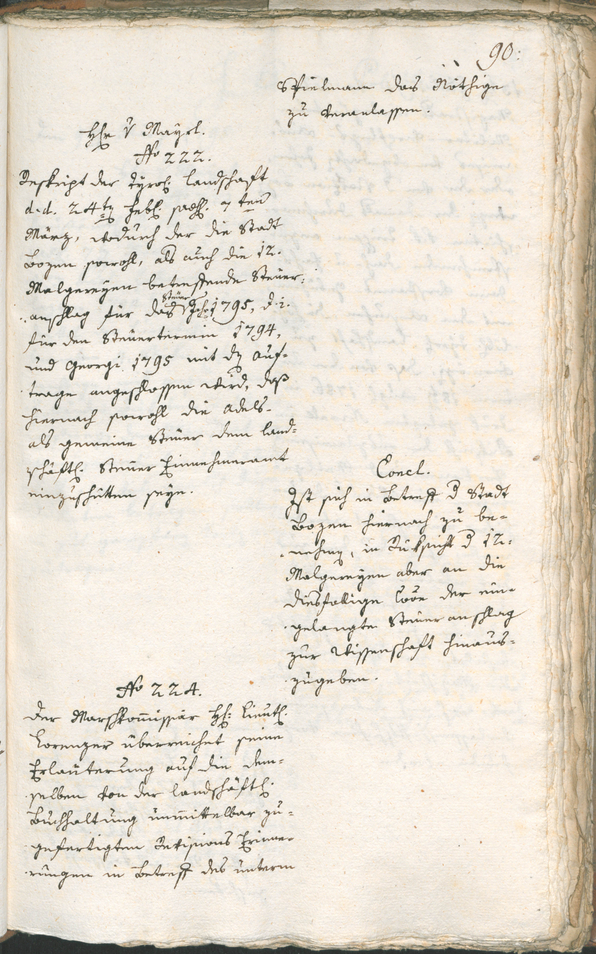 90.
Spielmann das Nöthige
zu veranlassen.
Hr. v Mayrl.
No 222.
Reskript der tyrol. Landschaft
d. d. 24ten Febr. 7ten
März, wodurch der die Stadt
Bozen sowohl, als auch die 12.
Malgereyen betreffende Steuer-
anschlag für das Steuer Jahr 1795, d. i.
für den Steuertermin 1794,
und Georgi 1795 mit dem Auf-
trage angeschlossen wird, daß
hiernach sowohl die Adels-
als gemeine Steuer dem land-
schäftl. Steuer Einnehmeramt
einzuschütten seye.
Concl.
Ist sich in Betreff d Stadt
Bozen hiernach zu be-
nehmen, in Rüksicht d 12.
Malgereyen aber an die
diesfällige der ein-
gelangte Steueranschlag
zur Wissenschaft hinaus-
zugeben.
No 224.
Der Marschkommissär Hr. Lieut.
Lorenzer überreichet seine
Erläuterung auf die dem-
selben von der landschäftl.
Buchhaltung unmittelbar zu-
gefertigten Revisions Erinner
rungen in Betreff des unterm